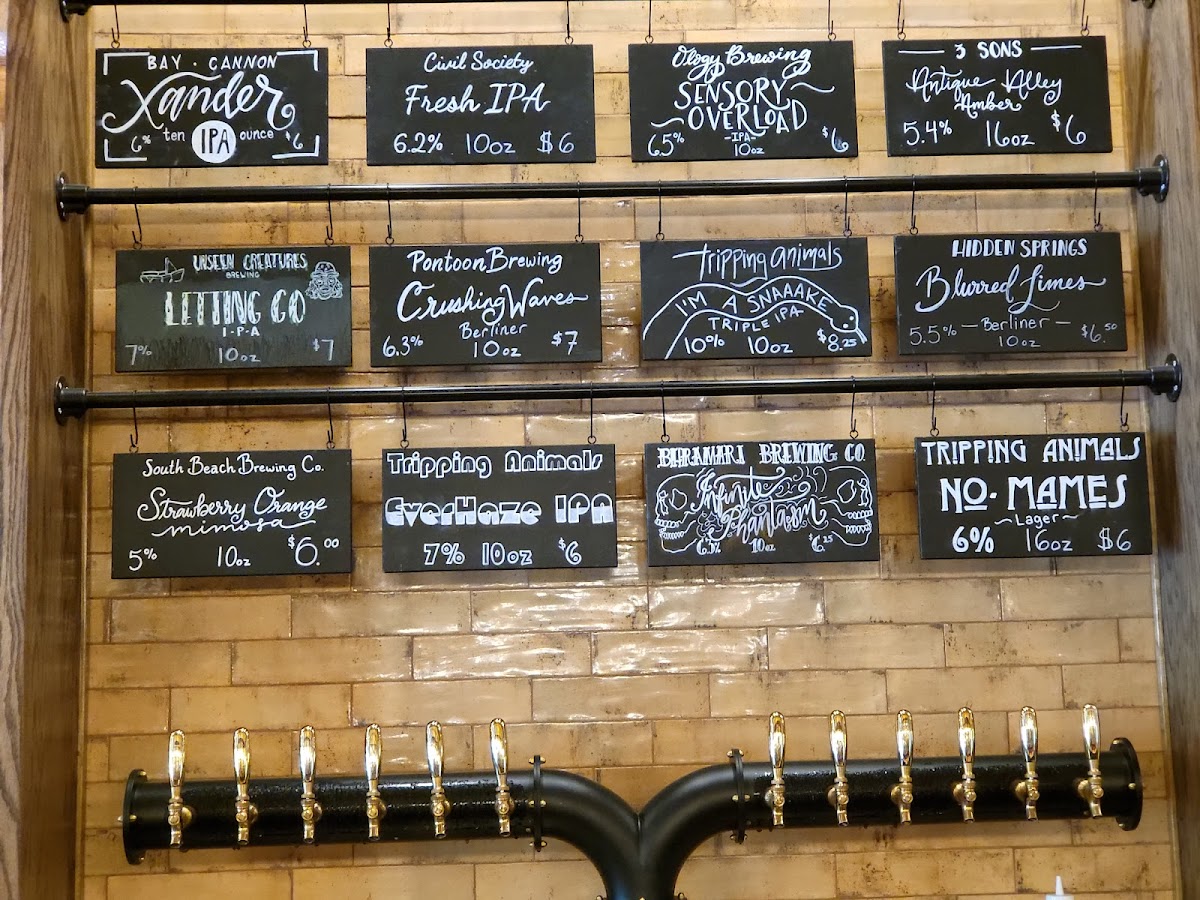 BAY · CANNON
Xander
6% ten IPA ounce $6
Civil Society
Fresh IPA
6.2% 10oz $6
Ology Brewing
SENSORY
OVERLOAD
-IPA-
6.5% 10oz $6
3 SONS
Antique Alley
Amber
5.4% 16oz $6
UNSEEN CREATURES
BREWING
LETTING GO
I·P·A
7% 10oz $7
Pontoon Brewing
Crushing Waves
Berliner
6.3% 10oz $7
Tripping Animals
I'M A SNAAAKE
TRIPLE IPA
10% 10oz $8.25
HIDDEN SPRINGS
Blurred Limes
5.5% — Berliner — $6.50
10oz
South Beach Brewing Co.
Strawberry Orange
mimosa
5% 10oz $6.00
Tripping Animals
EverHaze IPA
7% 10oz $6
BARANARI BREWING CO.
Infinite
Phantasm
6.5% 10oz $6.25
TRIPPING ANIMALS
NO· MAMES
~Lager~
6% 16oz $6